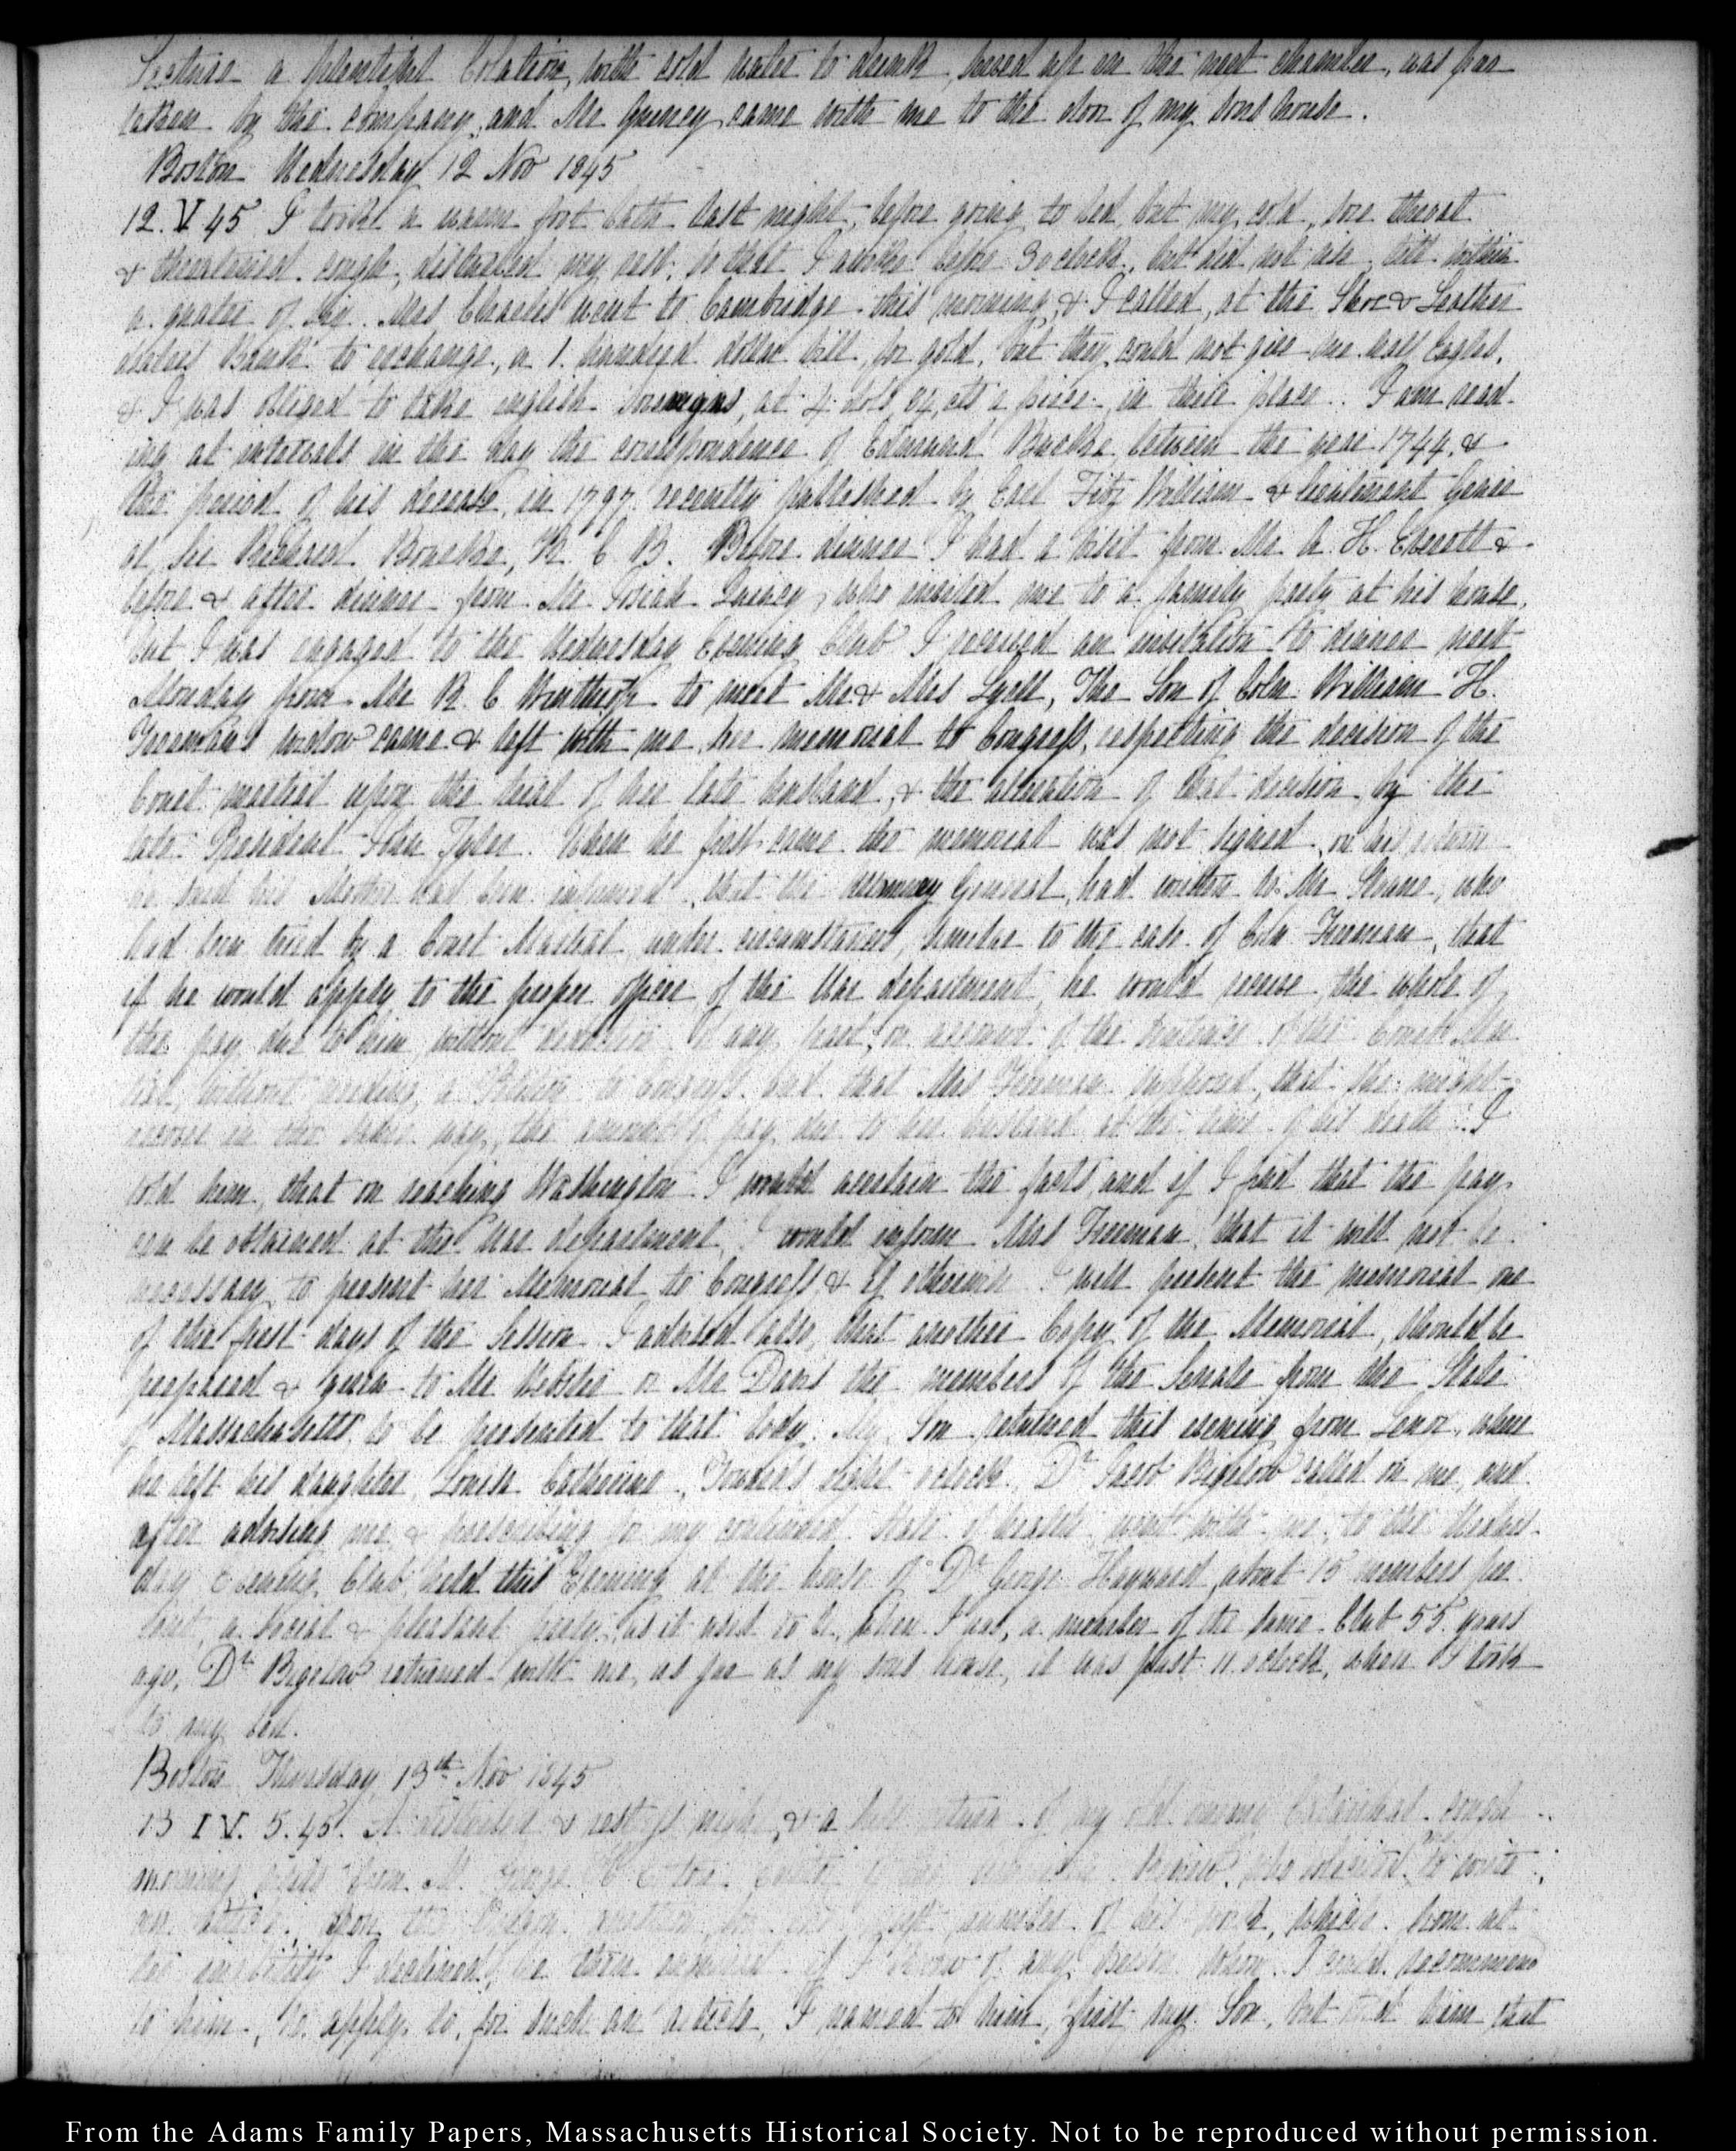 Lecture a plentiful Colation, with cold water to drink, served up in the next chamber, was par
taken by the company, and Mr Quincy came with me to the door of my sons house.
Boston Wednesday 12 Nov 1845
12. V 45 I took a warm foot bath last night, before going to bed, but my cold, sore throat
& cough, disturbed my rest, so that I awoke before 3 oclock, but did not rise, till within
a quarter of six. Mrs Charles went to Cambridge this morning, & I called, at the Shoe & Leather
dealers Bank to exchange, a 1. hundred dollar bill, for gold, but they could not give me half Eagles,
& I was obliged to take english sovereigns, at 4 dols 84 cts a piece in their place. I am read-
ing at intervals in the day the correspondence of Edmund Burke between the year 1744, &
the period of his decease, in 1797 recently published by Earl Fitz William & Lieutenant Gener
al Sir Richard Bourke, K. C B. Before dinner I had a visit from Mr A. H. Everett &
before & after dinner from Mr Josiah Quincy, who invited me to a family party at his house,
but I was engaged to the Wednesday Evening Club I received an invitation to dinner next
Monday from Mr R. C Winthrop to meet Mr & Mrs Lyell, The Son of Coln William H.
Freeman's widow came & left with me her memorial to Congress, respecting the decision of the
Court martial upon the trial of her late husband, & the alteration of that decision by the
late President John Tyler. When he first came the memorial was not signed, on his return
he said his Mother had been informed, that the Attorney General, had written to Mr Sloane, who
had been tried by a Court Martial under circumstances, similar to the case of Coln Freeman, that
if he would apply to the proper officer of the War department, he would receive the whole of
the pay due to him without deduction of any part, on account of the sentence of the Court Mar
tial, without making, a Petition to Congress, and that Mrs Freeman supposed, that she might
receive in the same way, the amount of pay due to her husband at the time of his death. I
told him, that on reaching Washington I would ascertain the facts, and if I find that the pay
can be obtained at the War department, I would inform Mrs Freeman, that it will not be
necessary to present her Memorial to Congress, & if otherwise I will present the memorial one
of the first days of the Session. I advised also, that another Copy of the Memorial, should be
prepared & given to Mr Webster or Mr Davis the members of the Senate from the State
of Massachusetts to be presented to that body. My Son returned this evening from Lenox, where
he left his daughter Louisa Catherine. Towards eight oclock, Dr Jacob Bigelow called on me, and
after advising me, & prescribing for my continued state of health went with me, to the Wednes-
day Evening Club, held this Evening at the house of Dr George Hayward about 15 members pre
sent, a social & pleasant party, as it used to be, when I was, a member of the same Club 55 years
ago, Dr Bigelow returned with me, as far as my sons house, it was past 11 oclock, when I took
to my bed.
Boston Thursday 13th Nov 1845
13 IV. 5.45. A disturbed & restless night, & a return of my old enemy catarrhal cough
morning visit from Mr George Review, who solicited me to write
an article, upon the Oregon question, for the next number of his work, which from ut
ter inability I declined, he then enquired if I knew of any person whom I could recommend
to him, to apply to, for such an article, I named to him, first my Son, but told him that